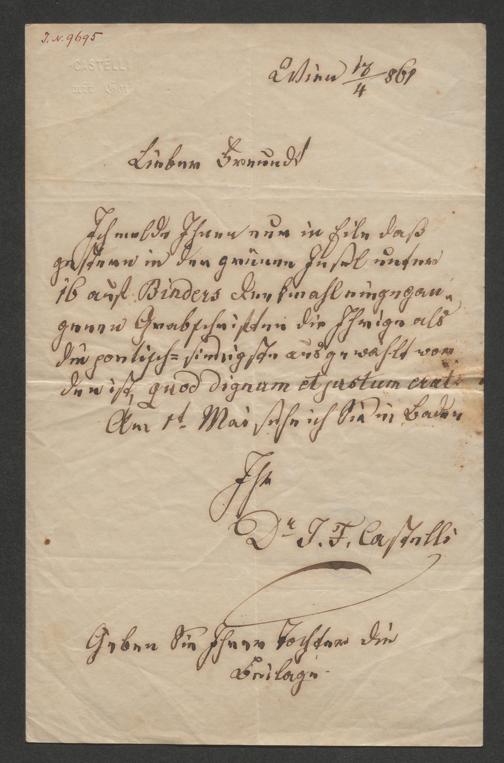 J.N. 9695
CASTELLI
Wien 17/4 861
Lieber Freund!
Ich melde Ihnen nur in Eile daß
gestern in der grünen Insel unter
16 auf Binders Denkmahl eingegan-
genen Grabschriften die Ihrige als
die poetisch=sinnigste ausgewählt wor
den ist, quod dignum et justum erat.
Am 1t Mai sehe ich Sie in Baden
Ihr
Dr J. F. Castelli
Geben Sie Ihrer Tochter die
Beilage